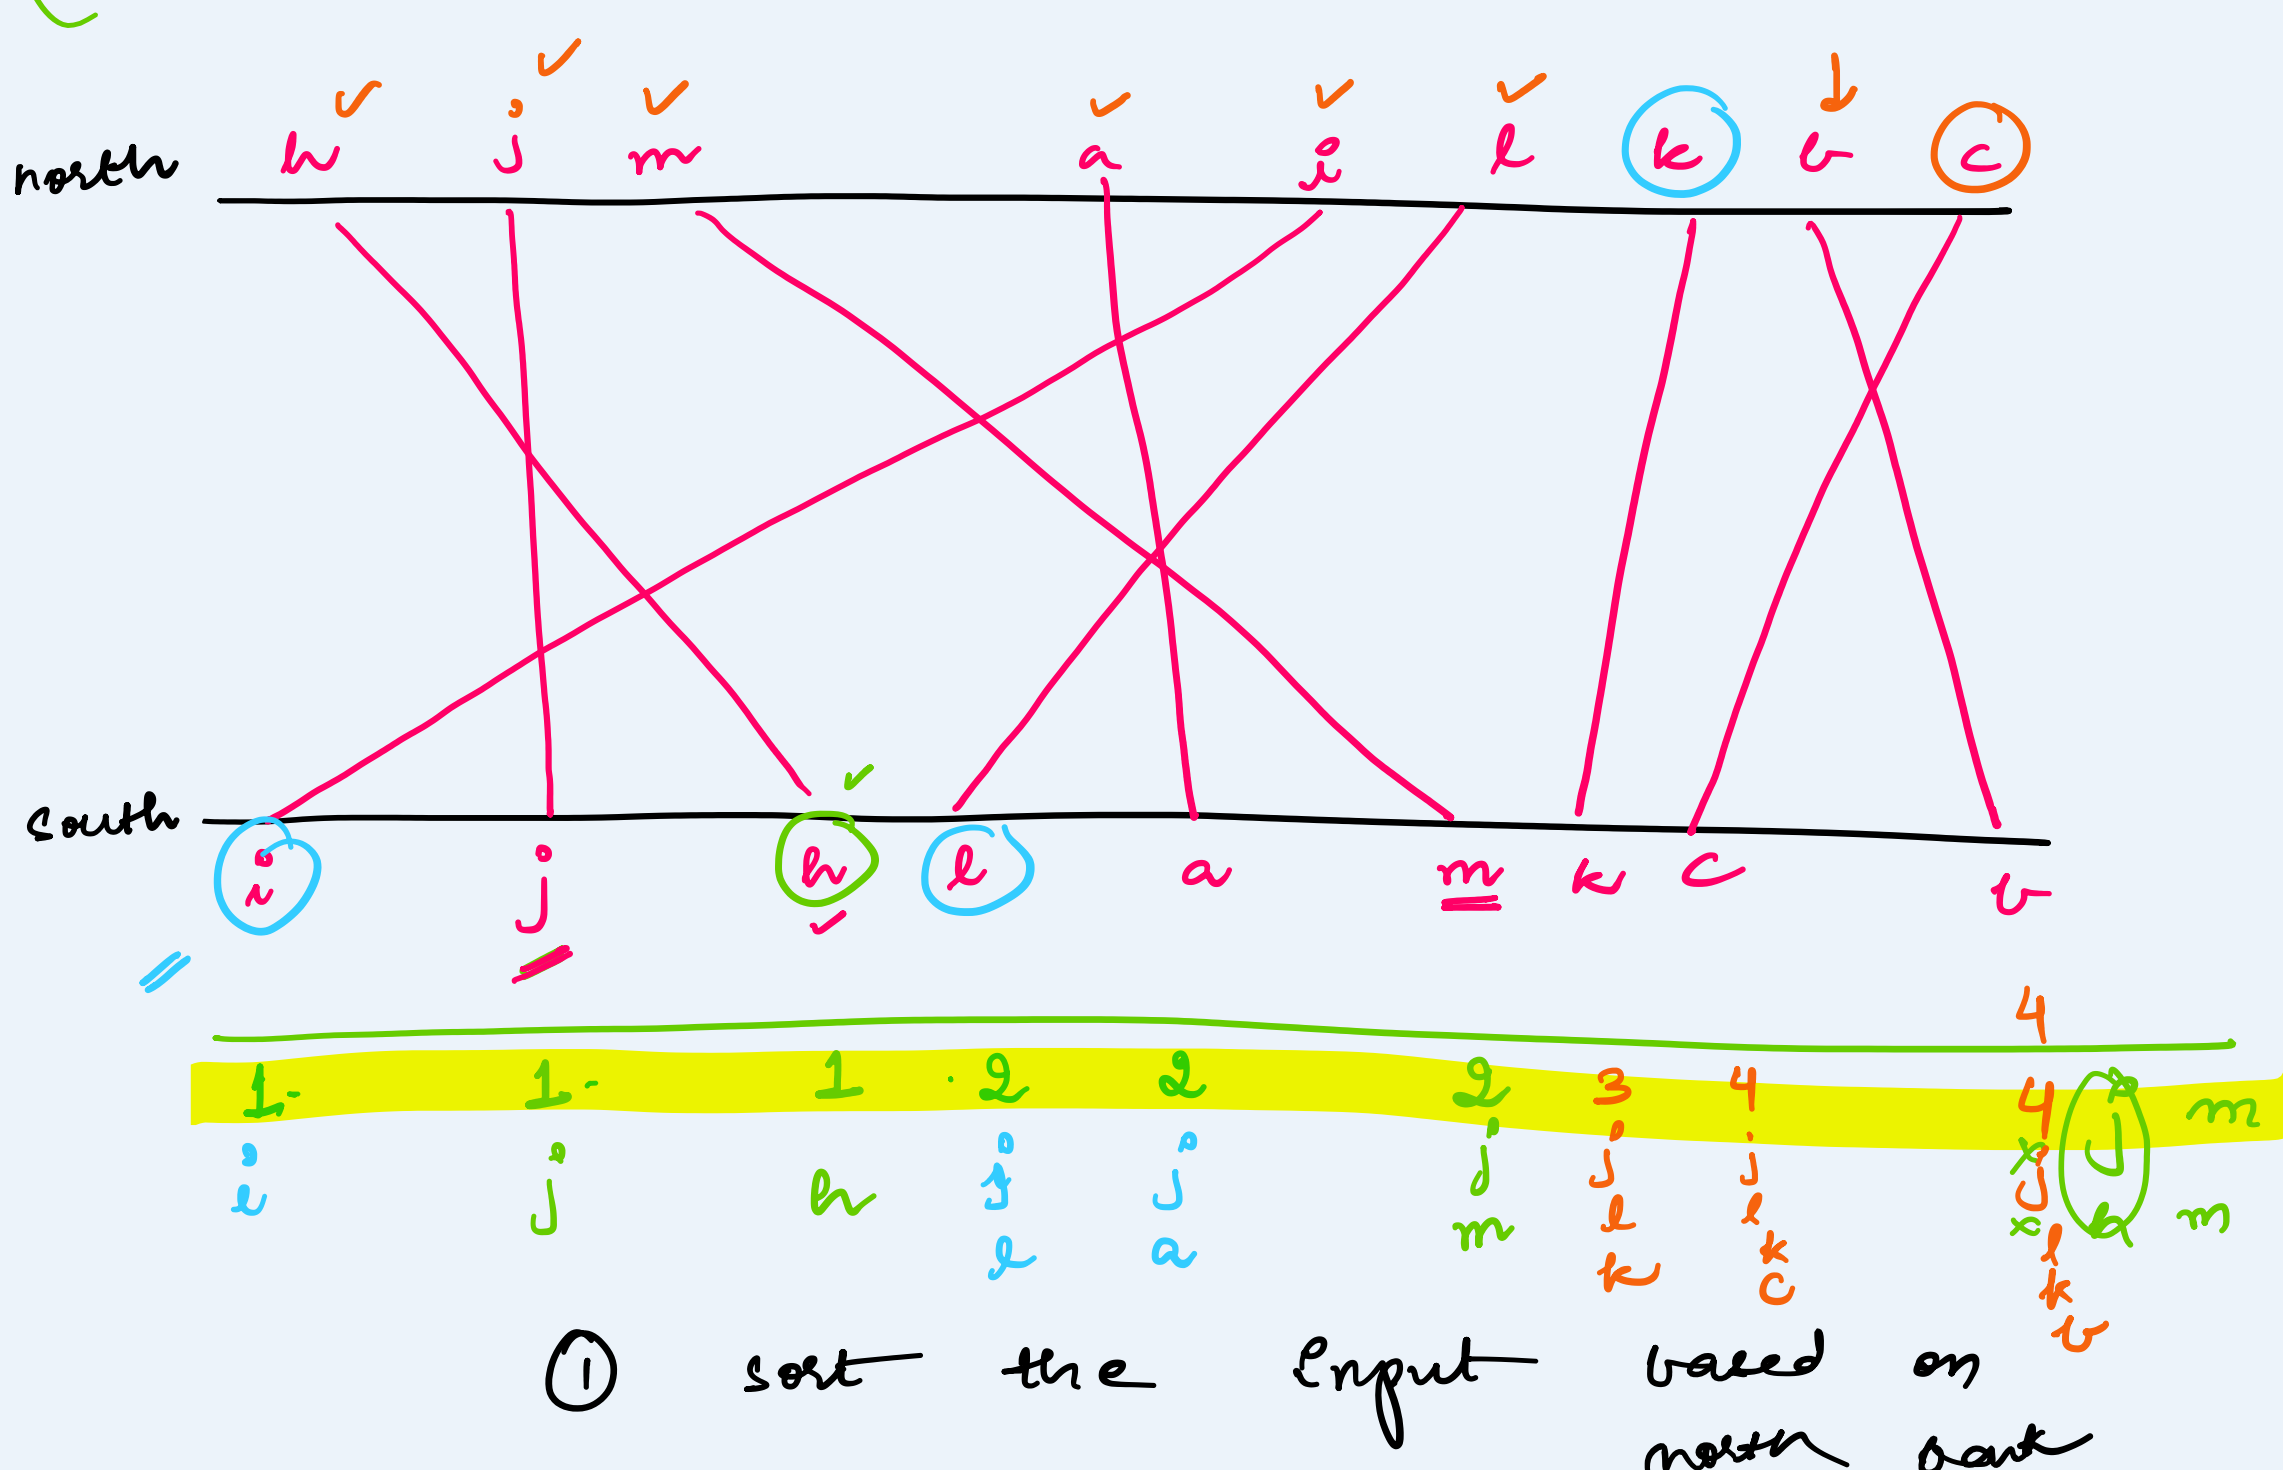 north h j m a i l k b c
south i j h l a m k c b
4
1 1 1 2 2 2 3 4 4 j m
i j h j j j j j j h m
l a m l l l
k k k
c b
① sort the Input based on
north bank